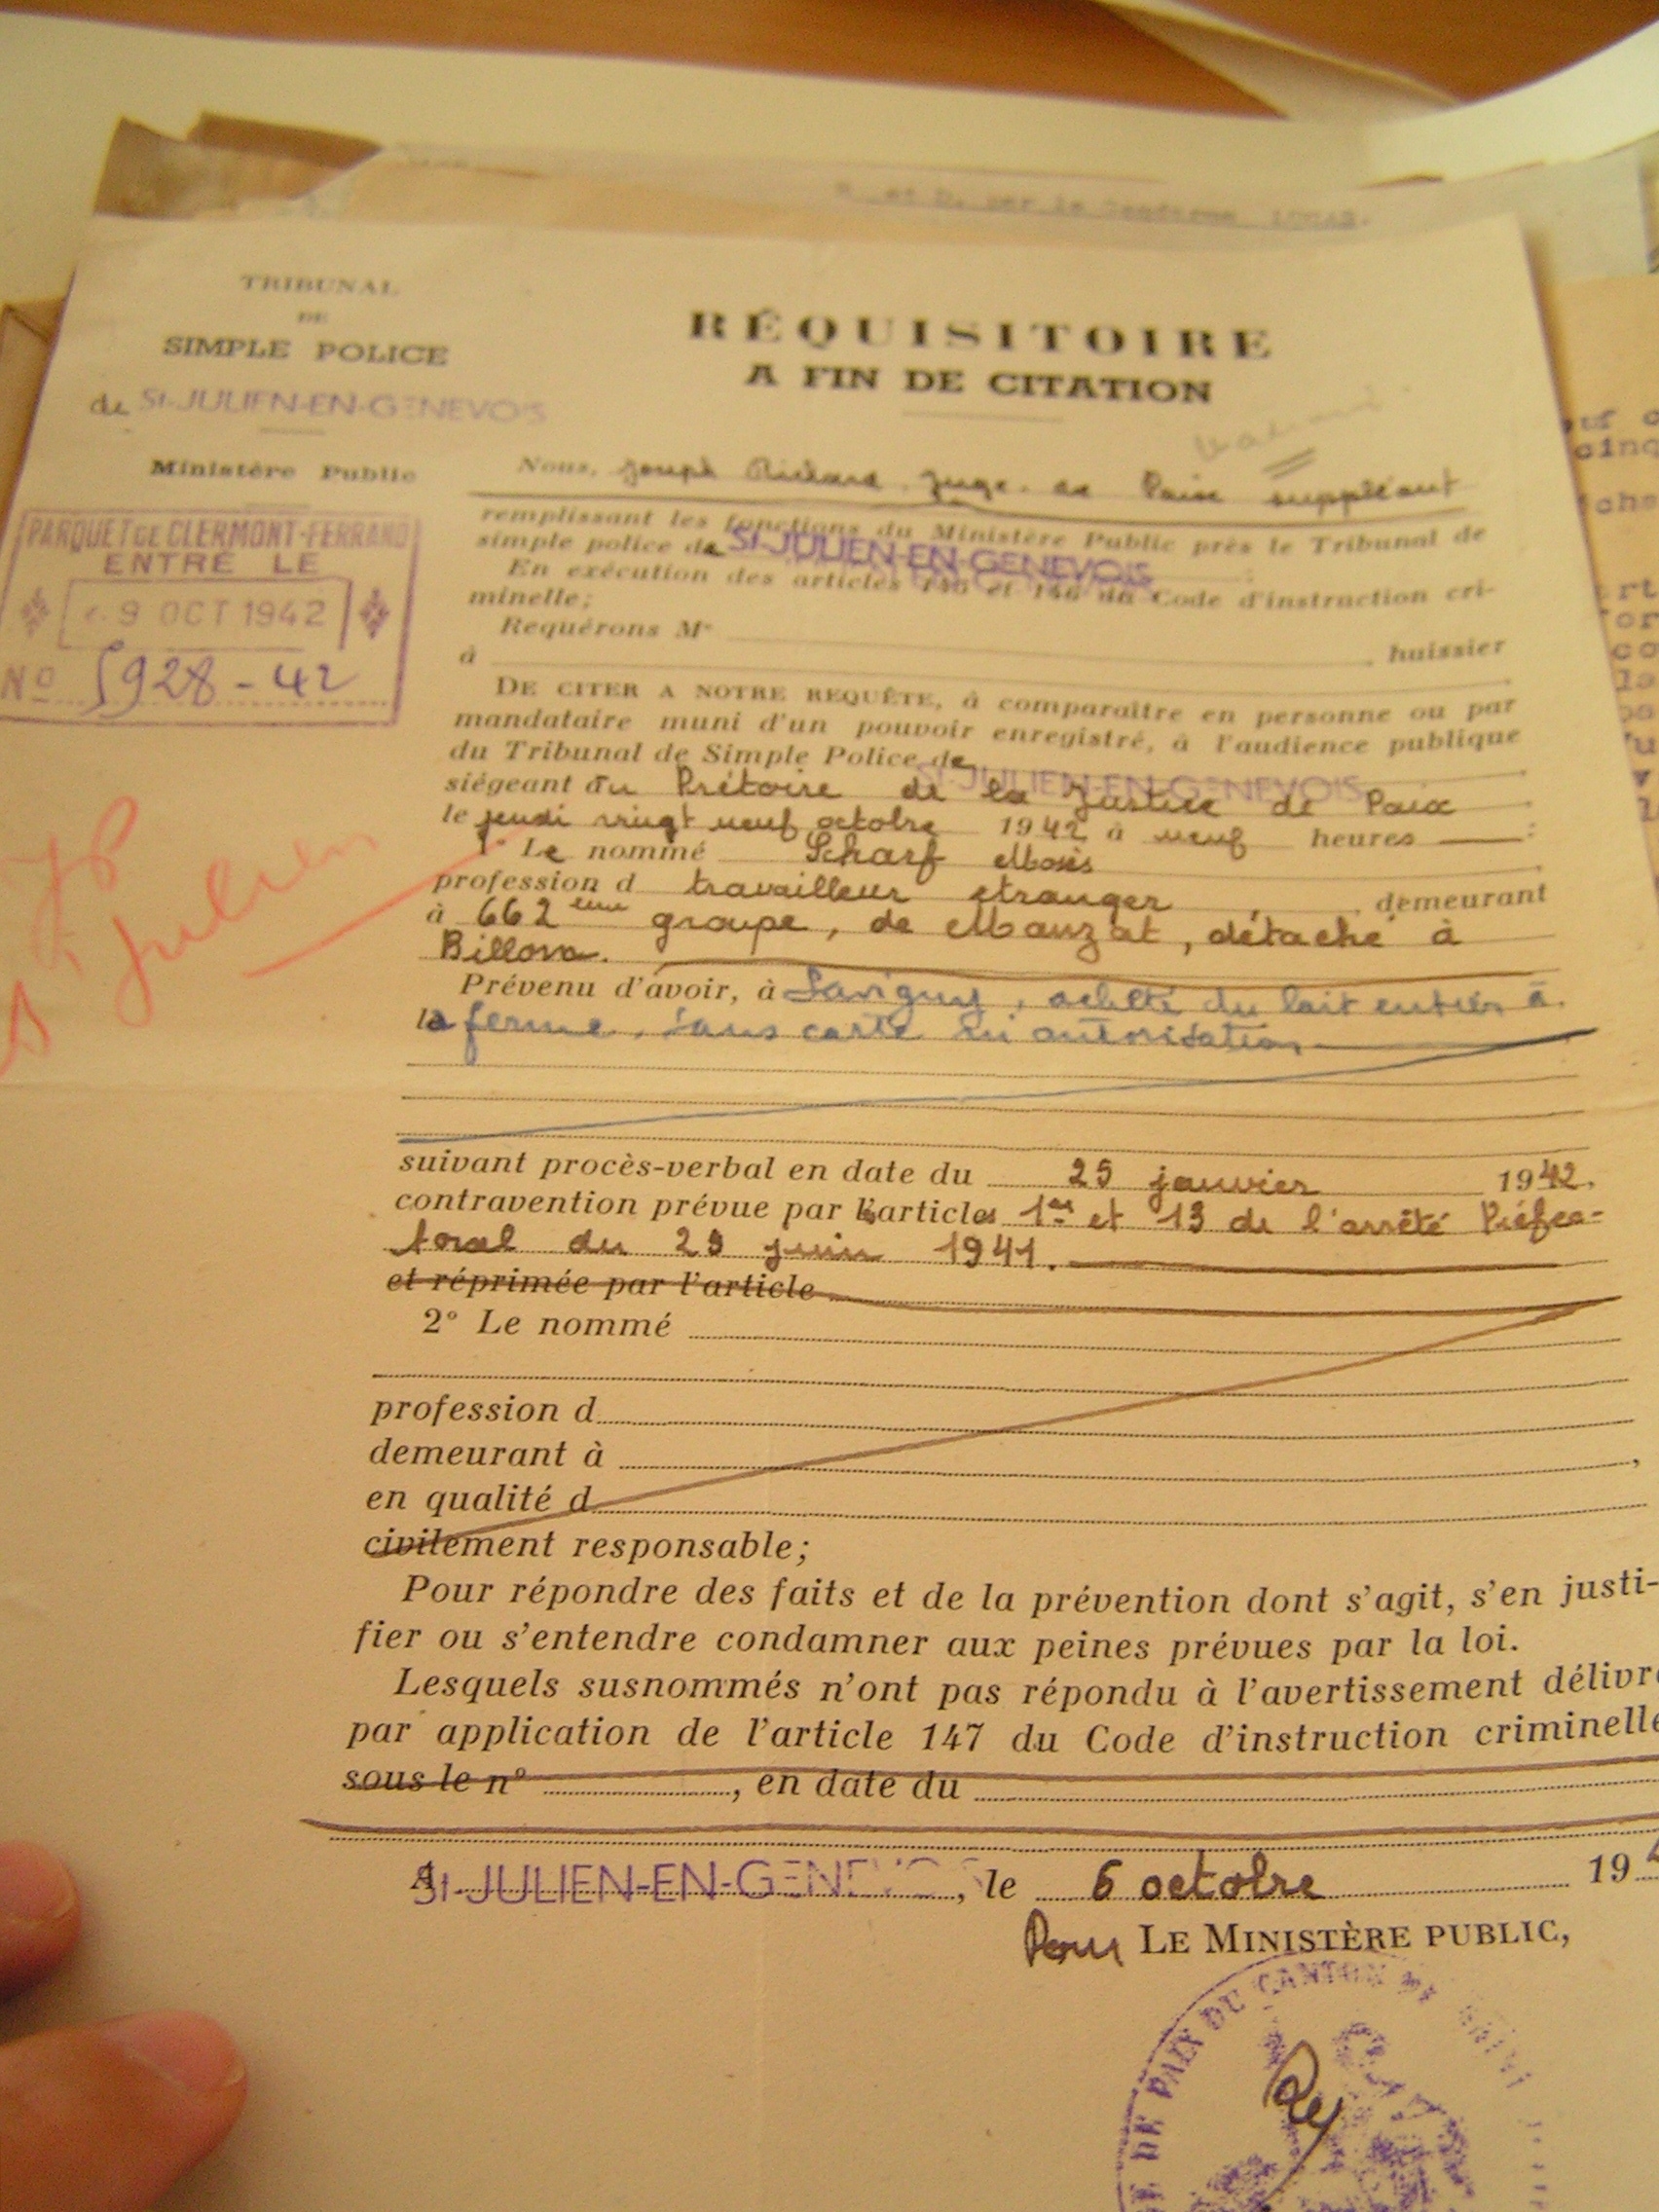 TRIBUNAL
DE
SIMPLE POLICE
de St-JULIEN-EN-GENEVOIS
Ministère Public
PARQUET DE CLERMONT-FERRAND
ENTRÉ LE
9 OCT 1942
No 5928-42
JP
St Julien
RÉQUISITOIRE
A FIN DE CITATION
Nous, Joseph Richard Juge de Paix suppléant
remplissant les fonctions du Ministère Public près le Tribunal de
simple police de St-JULIEN-EN-GENEVOIS
En exécution des articles 145 et 146 du Code d'instruction cri-
minelle;
Requérons Me
à huissier
DE CITER A NOTRE REQUÊTE, à comparaître en personne ou par
mandataire muni d'un pouvoir enregistré, à l'audience publique
du Tribunal de Simple Police de St-JULIEN-EN-GENEVOIS
siégeant au Prétoire de la Justice de Paix
le jeudi vingt neuf octobre 1942 à neuf heures :
1° Le nommé Scharf Mosès
profession d travailleur etranger, demeurant
à 662 ème groupe, de Manzat, détaché à
Billom.
Prévenu d'avoir, à Savigny, acheté du lait entier à
la ferme, sans carte ni autorisation
suivant procès-verbal en date du 25 janvier 1942,
contravention prévue par les articles 1er et 13 de l'arrêté Préfec-
toral du 23 juin 1941.
et réprimée par l'article
2° Le nommé
profession d
demeurant à ,
en qualité d
civilement responsable;
Pour répondre des faits et de la prévention dont s'agit, s'en justi-
fier ou s'entendre condamner aux peines prévues par la loi.
Lesquels susnommés n'ont pas répondu à l'avertissement délivré
par application de l'article 147 du Code d'instruction criminelle
sous le n° , en date du
A St-JULIEN-EN-GENEVOIS, le 6 octobre 194
Pour LE MINISTÈRE PUBLIC,
DE PAIX DU CANTON DE